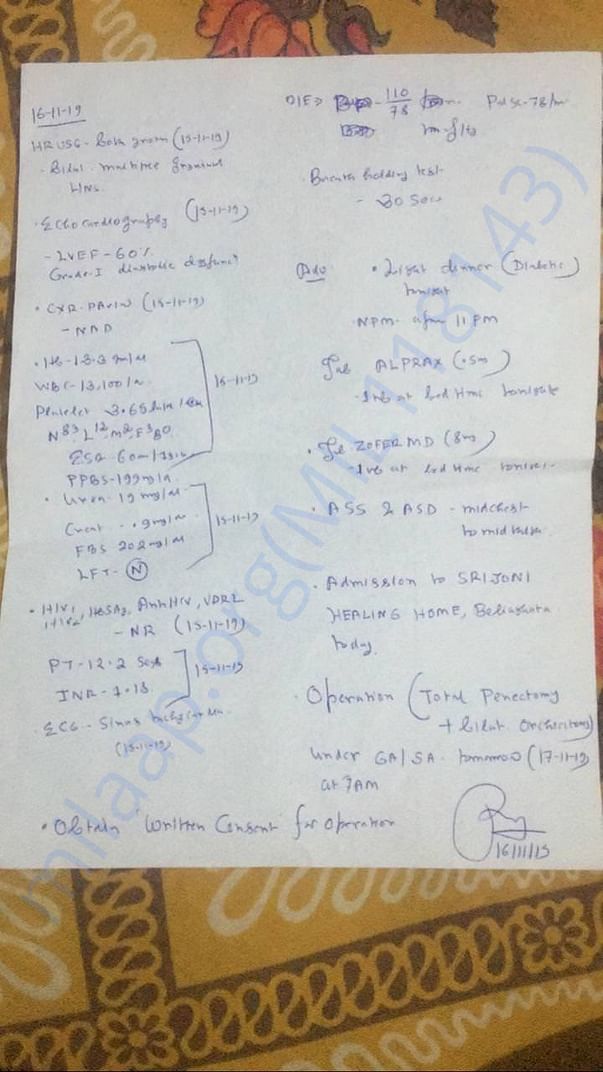 16-11-19
HRUSG - Both groin (15-11-19)
- Bilat. multiple
LNs.
• Echocardiography (15-11-19)
- LVEF - 60%
Grade-I diastolic dysfunc
• CXR-PA view (15-11-19)
- NAD
• Hb - 13.3
WBC - 13,100
Platelet 3.65
N83 L12 M2 E3 B0
ESR - 60
PPBS - 199 mg
16-11-19
• Urea - 19 mg
Creat - .9 mg
FBS 202 mg
LFT - N
15-11-19
• HIV1 HIV2, HBSAg, Anti HCV, VDRL
- NR (15-11-19)
PT - 12.2 Secs
INR - 1.18
15-11-19
ECG - Sinus tachycardia
(15-11-19)
• Obtain 'Written Consent' for operation
O/E → 110/78 Pulse - 78/m
• Breath holding test
- 30 Secs
Adv • Light dinner (Diabetic)
tonight
• NPM after 11 PM
Tab ALPRAX (.5m)
- 1 tab at bed time tonight
• Tab ZOFER MD (8m)
- 1 tab at bed time tonight
• ASS & ASD - midchest
to mid
• Admission to SRIJONI
HEALING HOME, Beliaghata
today.
• Operation (Total Penectomy
+ Bilat. Orchiectomy)
under GA/SA tomorrow (17-11-19)
at 7AM
16/11/19
milaap.org(MIL118143)